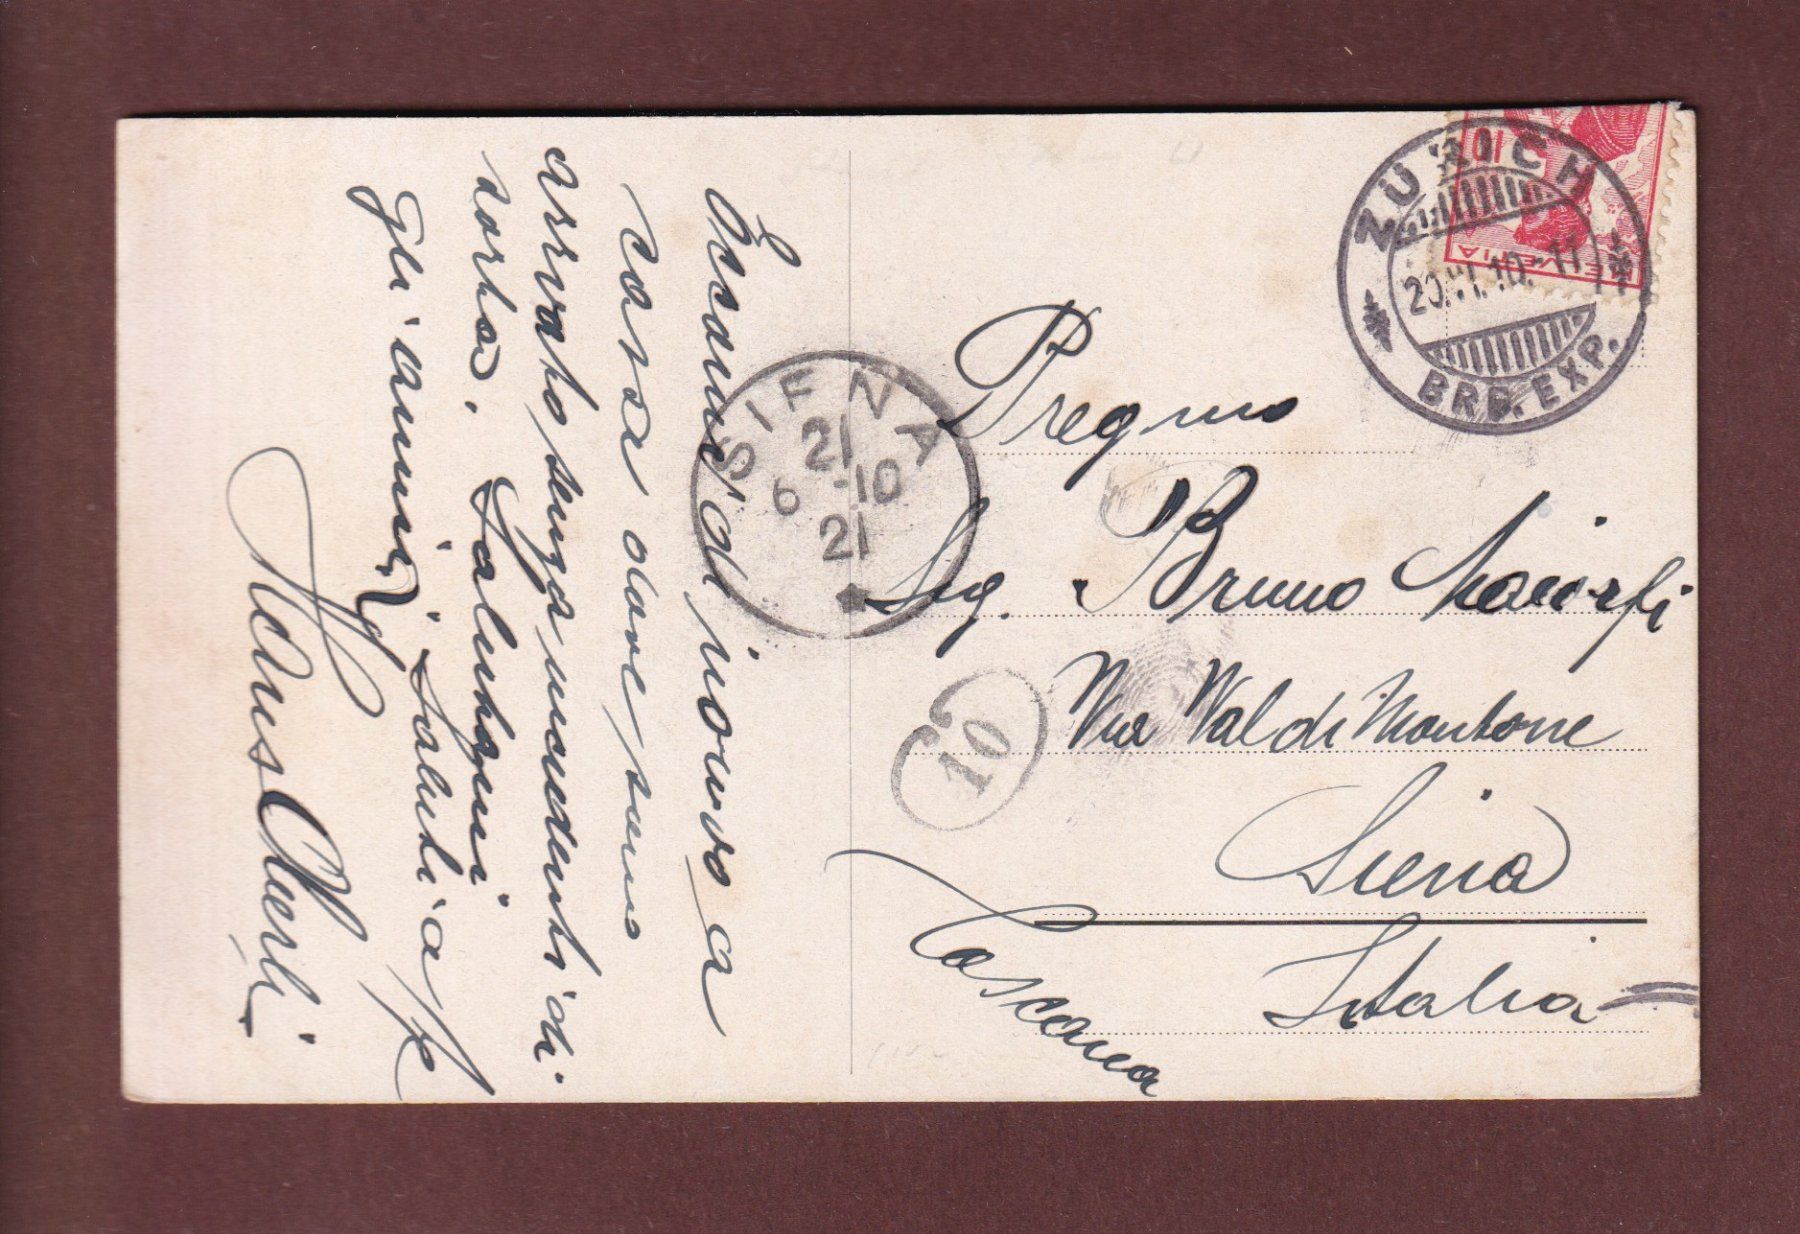 Eccomi di nuovo a
casa dove sono
arrivato senza incidenti di
sorta. Salutami
gli amici i saluti a te
Hans
ZÜRICH
20.VI.10.-11
BRF.EXP.
10
HELVETIA
SIENA
21
6 -10
21
10
Pregmo
Sig. Bruno
Via Val di Montone
Siena
Italia
Toscana